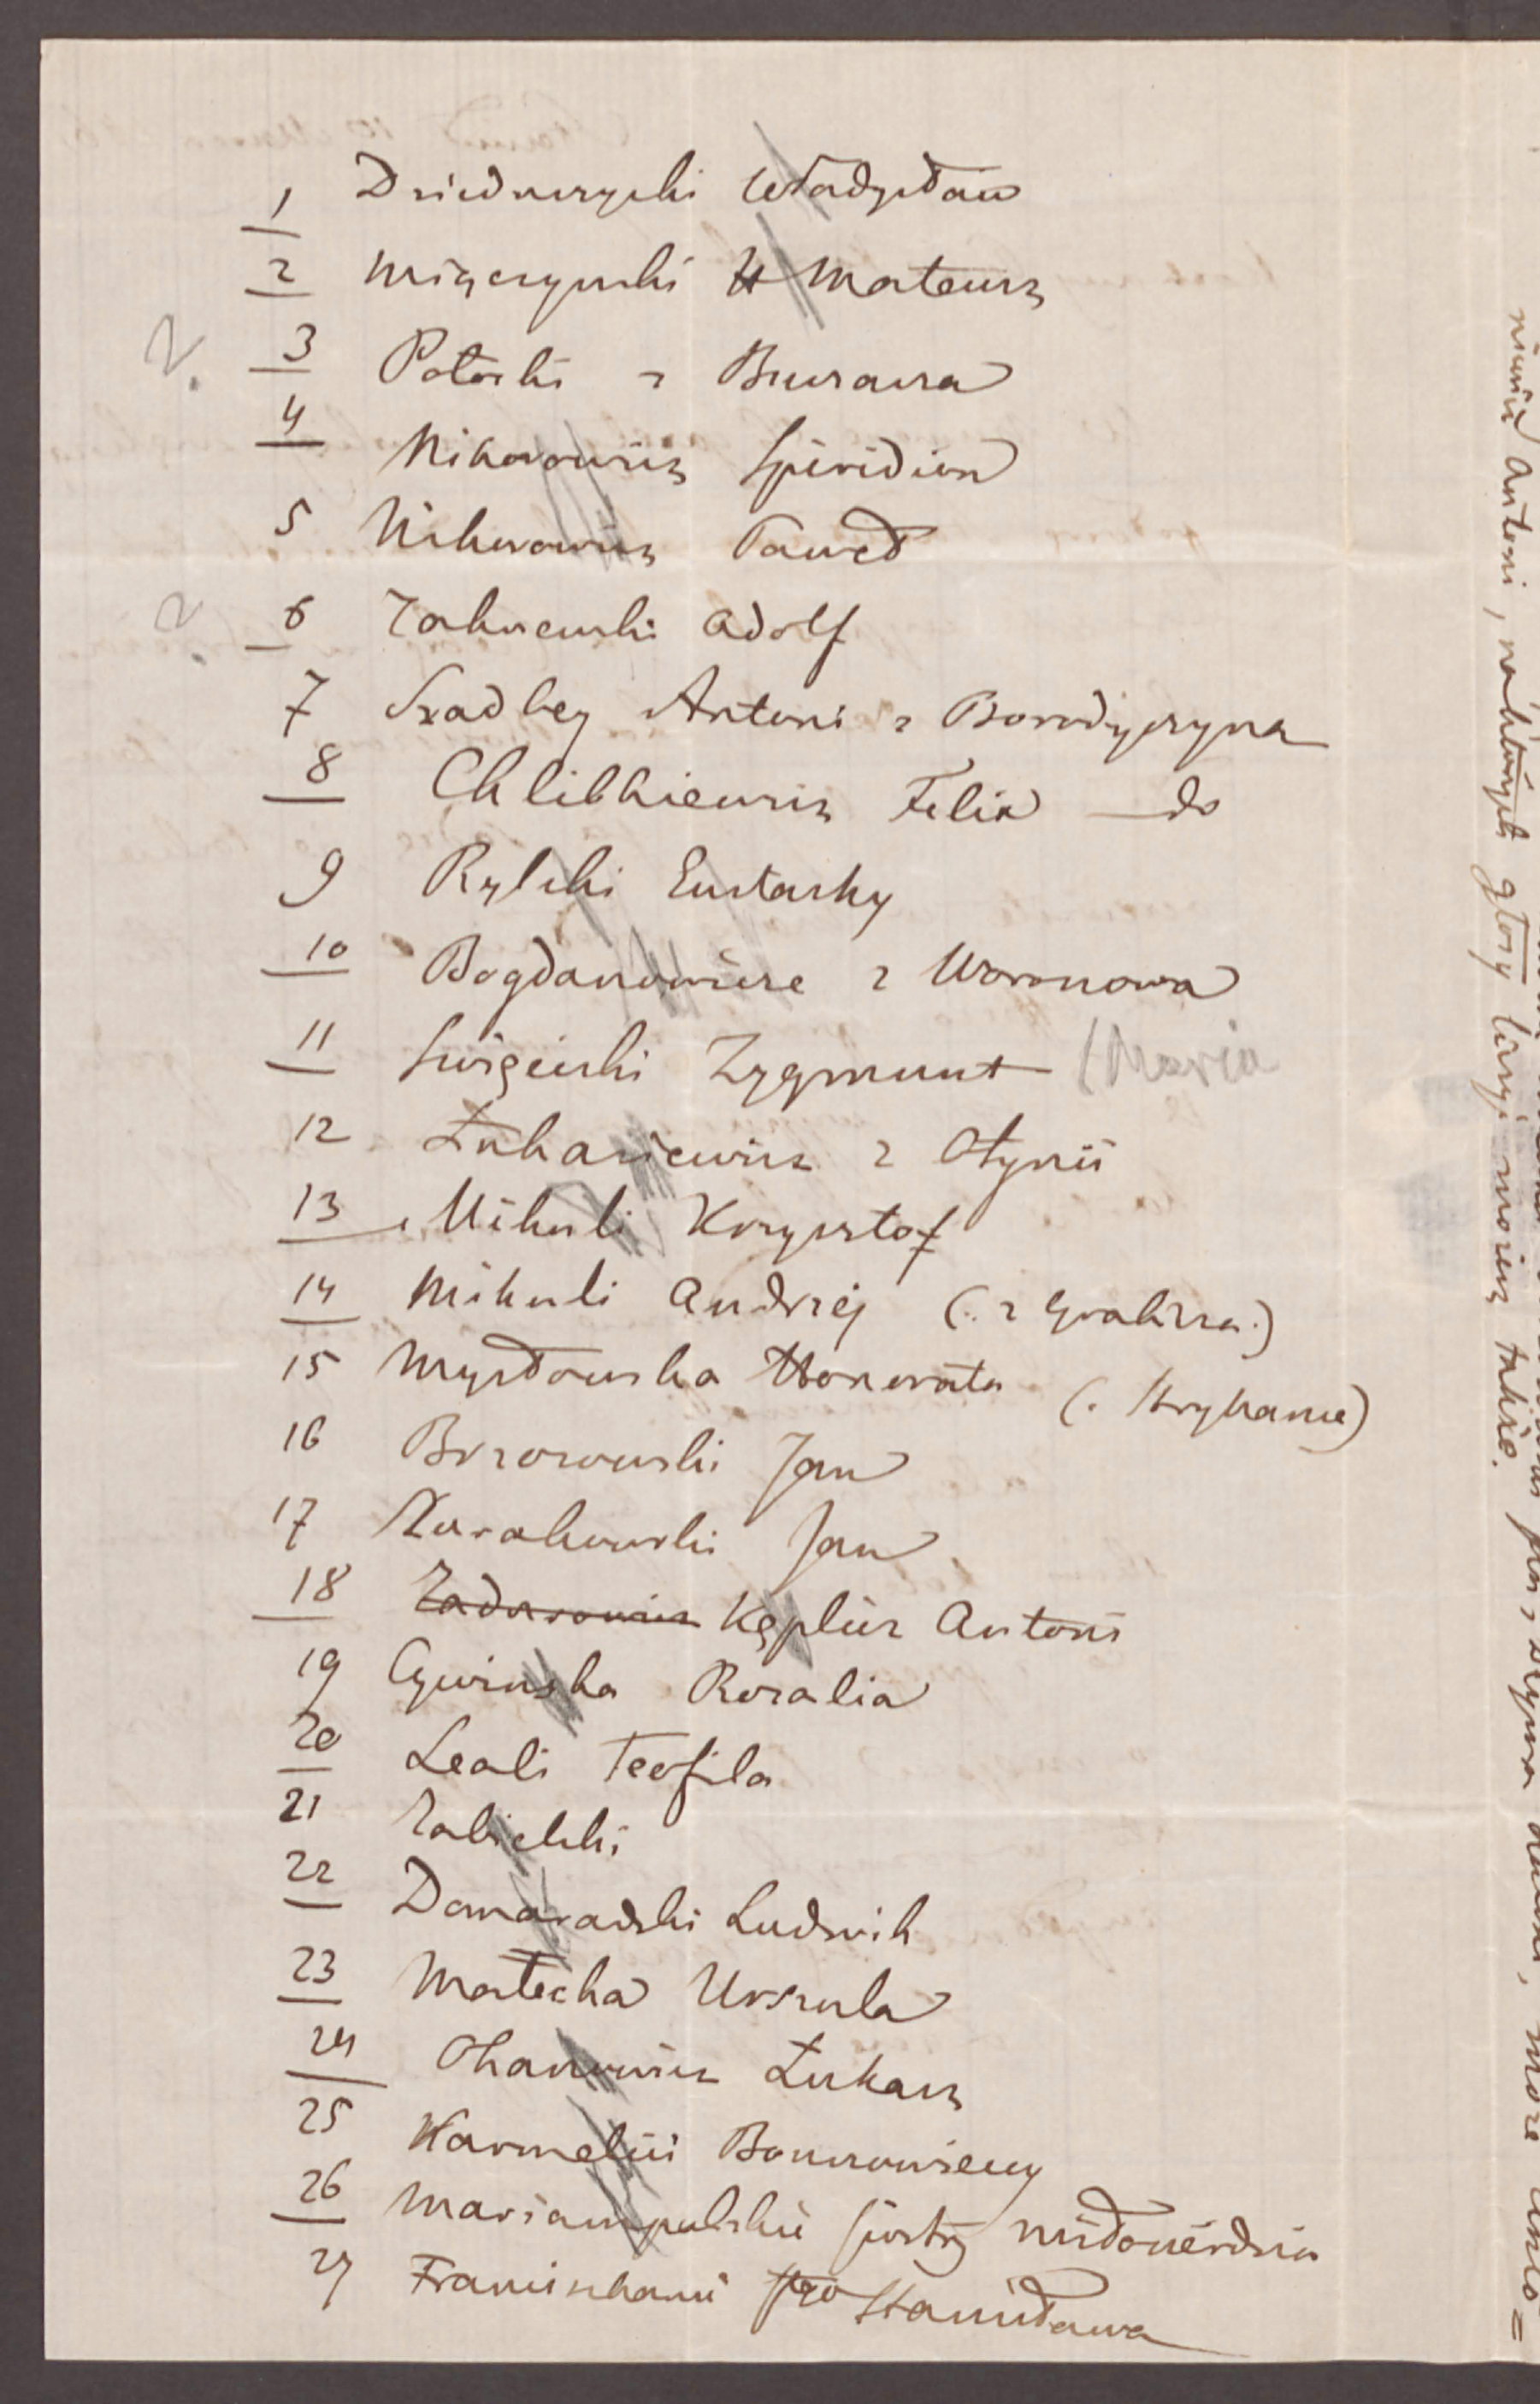 1 Dzieduszycki Władysław
2 Mięczyński Mateusz
? 3 Potocki z Buczacza
4 Nikorowicz Spiridion
5 Nikorowicz Paweł
? 6 Zakrzewski Adolf
7 Szadbey Antoni z Borodyczyna
8 Chlibkiewicz Felix — do
9 Rylski Eustachy
10 Bogdanowicze z Woronowa
11 Swiężeński Zygmunt (Maria
12 Łukasiewicz z Otynii
13 Mikuli Krzysztof
14 Mikuli Andrzéj
15 Mysłowska Honorata
16 Brzozowski Jan
17 Jan
18 Antoni
19 Cywinska Rozalia
20 Leali Teofila
21 Zabielski
22 Domaradzki Ludwik
23 Małecka Urszula
24 Ohanowicz Łukasz
25 Karmelici Bouszowieccy
26 Mariampolskie siostry miłosierdzia
27 Franciszkanie Sgo Stanisława
Antoni, na których głosy liczyć możesz także.